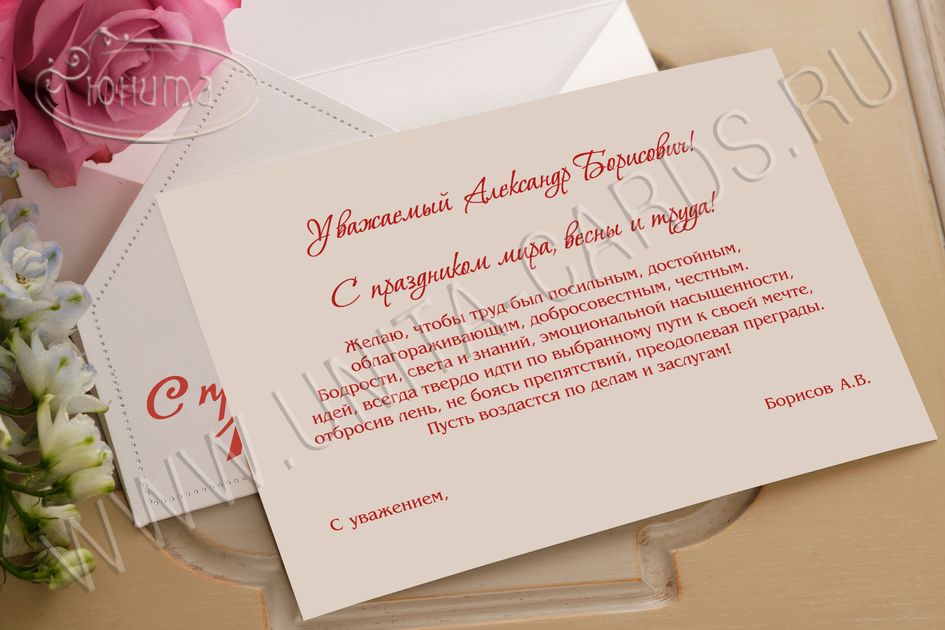 Юнита
Уважаемый Александр Борисович!
С праздником мира, весны и труда!
Желаю, чтобы труд был посильным, достойным,
облагораживающим, добросовестным, честным.
Бодрости, света и знаний, эмоциональной насыщенности,
идей, всегда твердо идти по выбранному пути к своей мечте,
отбросив лень, не боясь препятствий, преодолевая преграды.
Пусть воздастся по делам и заслугам!
Борисов А.В.
С уважением,
С пр
1
WWW.UNITA-CARDS.RU